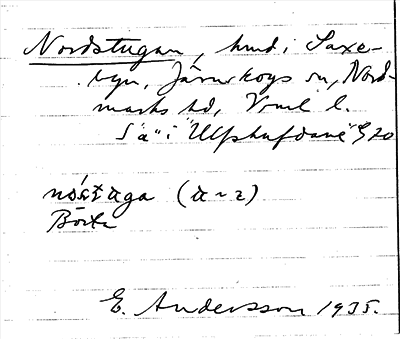 Nordstugan, hmd i Saxe-
byn, Järnskogs sn, Nord-
marks hd, Vrml l.
S "ä" i "Ulfshufdane" § 20
nó̵stᴀga (a ~ 2)
Börte
E. Andersson 1935.